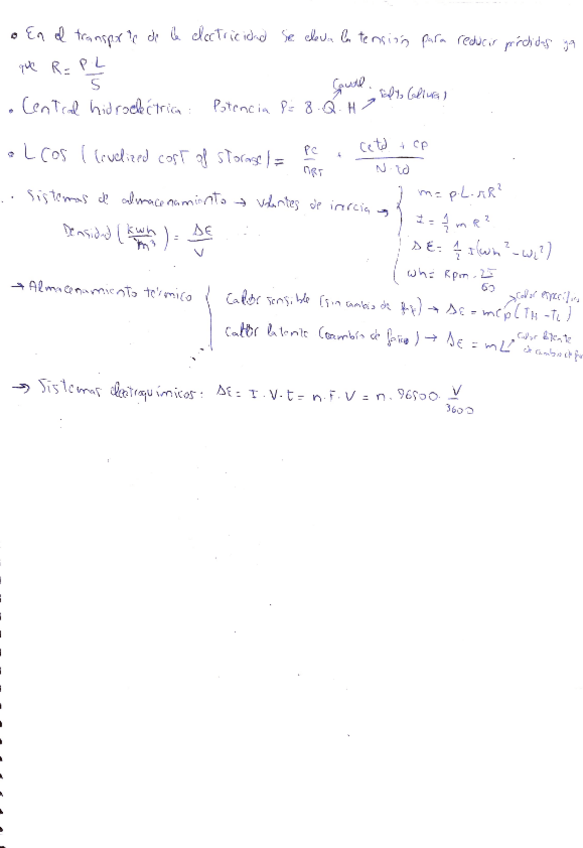 • En el transporte de la electricidad se eleva la tensión para reducir pérdidas ya
que R = ρ L/S
• Central hidroeléctrica: Potencia P = 8·Q·H
Caudal.
salto (altura)
• LCOS (levelized cost of storage) = PC/ηRT + (Cetd + CP)/(N·τd)
· Sistemas de almacenamiento → volantes de inercia →
m = ρ·L·πR²
I = 1/2 m R²
ΔE = 1/2 I(ωh² - ωl²)
ωh = Rpm · 2π/60
Densidad (kWh/m³) = ΔE/V
→ Almacenamiento térmico
Calor sensible (sin cambio de fase) → ΔE = mcp(TH - TL)
calor específico
Calor latente (cambio de fase) → ΔE = mL
calor latente
de cambio de fase
→ Sistemas electroquímicos: ΔE = I·V·t = n·F·V = n·96500· V/3600